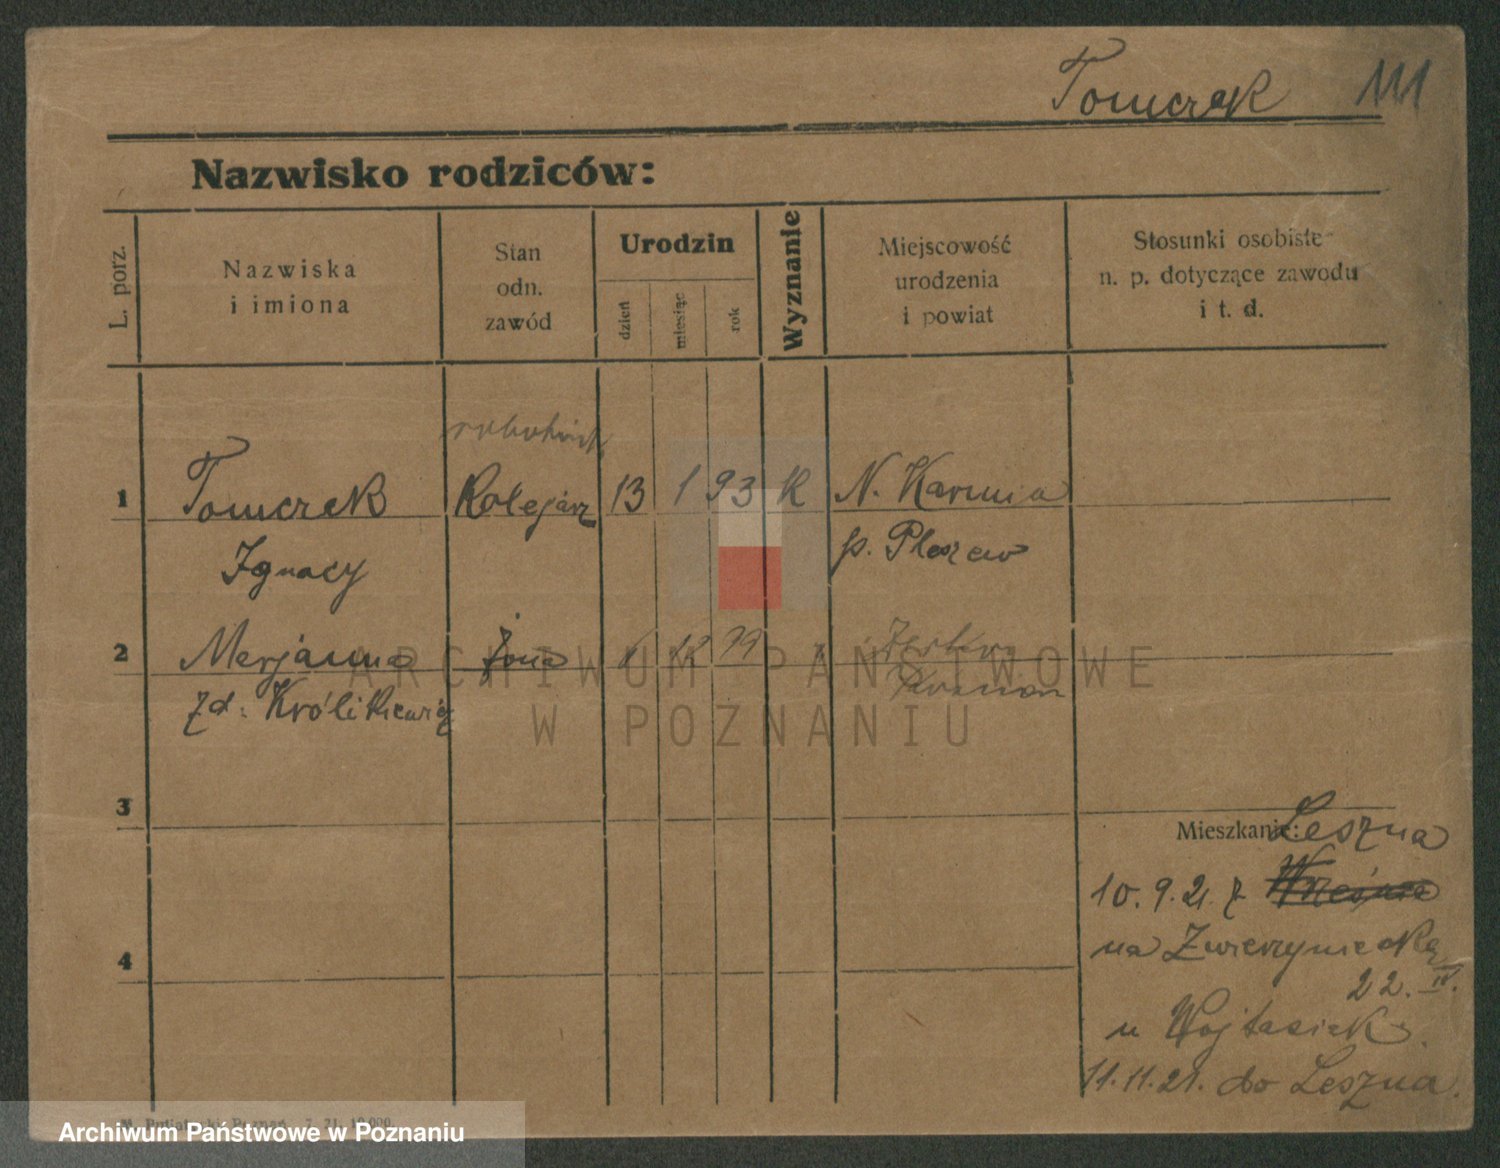 Tomczak 111
Nazwisko rodziców:
L. porz.
Nazwiska
i imiona
Stan
odn.
zawód
Urodzin
dzień
miesiąc
rok
Wyznanie
Miejscowość
urodzenia
i powiat
Stosunki osobiste
n. p. dotyczące zawodu
i t. d.
robotnik
1 Tomczak Kolejarz 13 1 93 K N. Karmia
Ignacy p. Pleszew
2 Marjanna żona
zd. Królikiewicz
3
4
Mieszkanie: Leszna
10. 9. 21. z
na Zwierzyniecką
22. IV.
u Wojtasiak
11. 11. 21. do Leszna.
ARCHIWUM PAŃSTWOWE
W POZNANIU
Archiwum Państwowe w Poznaniu